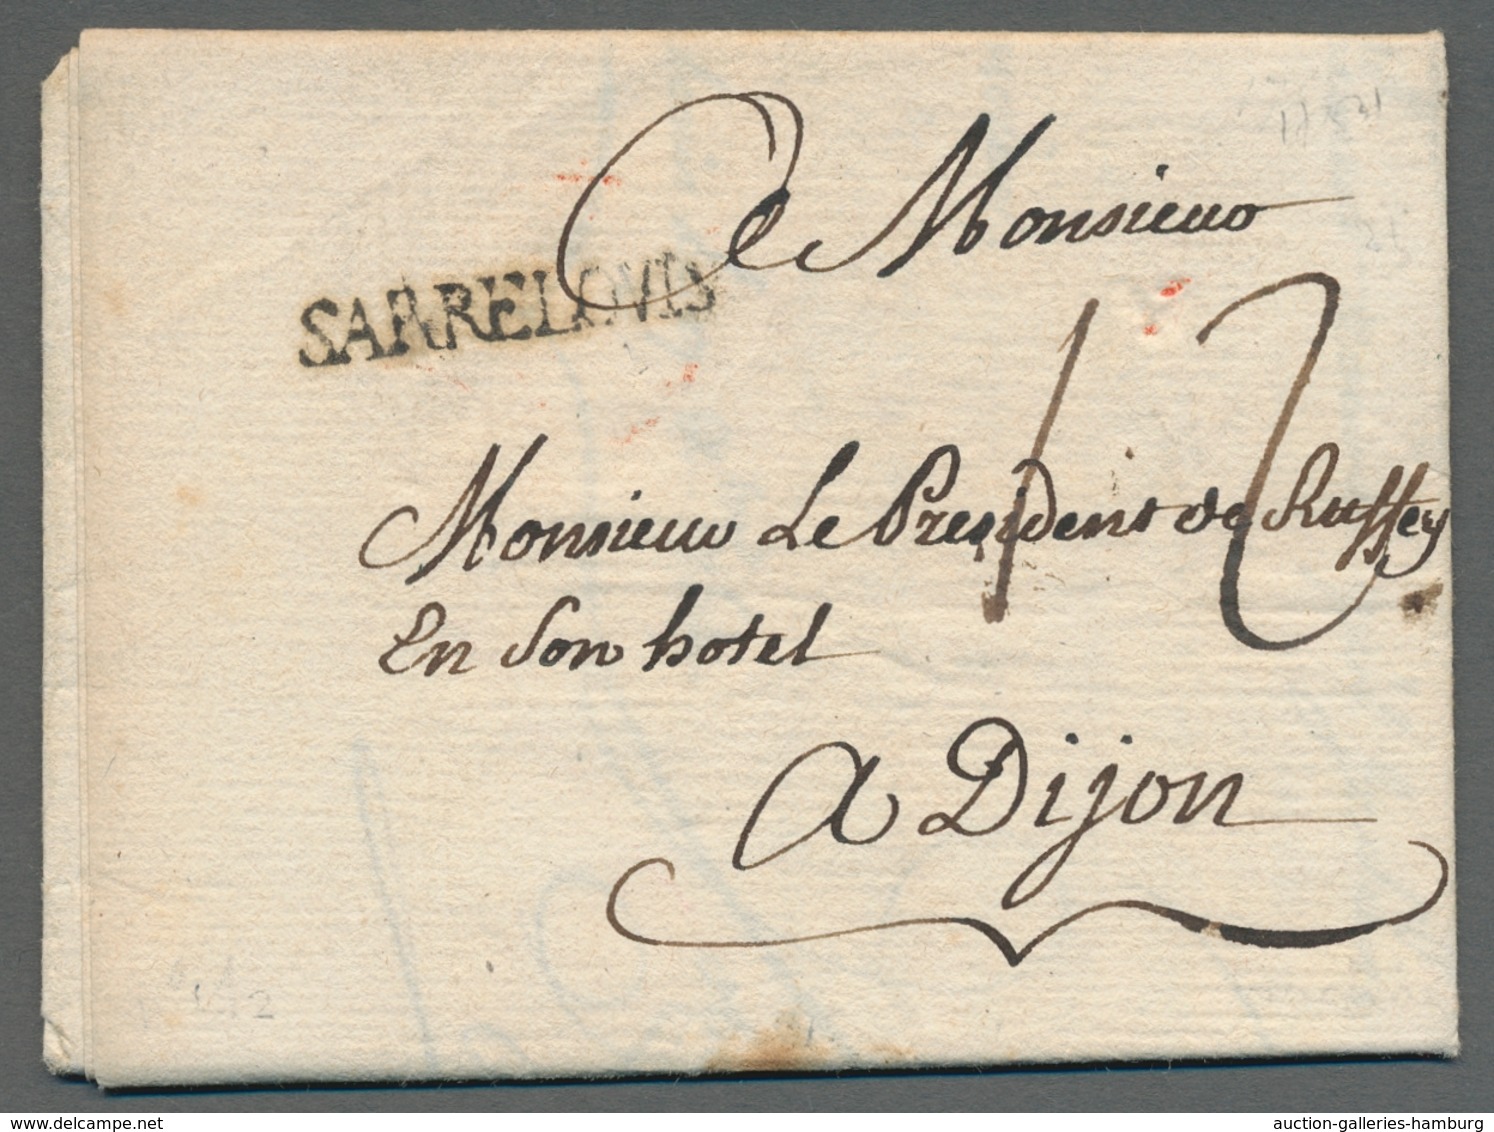 A Monsieur
SARRELOUIS
12
Monsieur Le President de Ruffey
En Son hotel
A Dijon
auction-galleries-hamburg